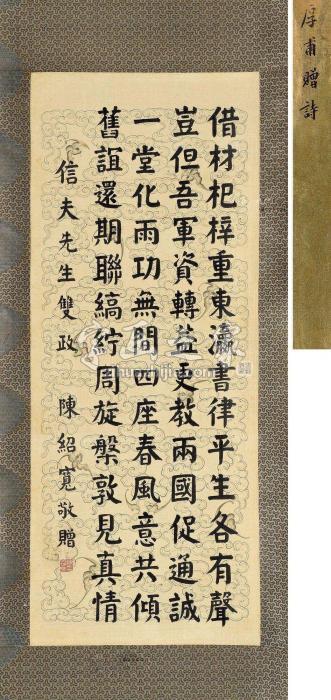 借材杞梓重東瀛書律平生各有聲
豈但吾軍資轉益更教兩國促通誠
一堂化雨功無間四座春風意共傾
舊誼還期聯縞紵周旋槃敦見真情
信夫先生雙政 陳紹寬敬贈
厚甫贈詩